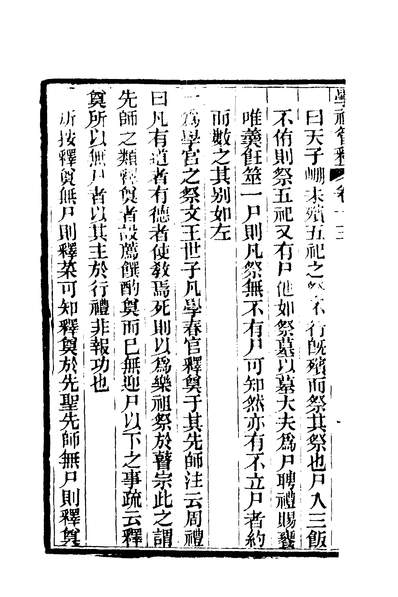 學禮管釋 卷十三
曰天子崩未殯五祀之祭不行既殯而祭其祭也尸入三飯
不侑則祭五祀又有尸他如祭墓以墓大夫為尸聘禮賜饔
唯羹飪筮一尸則凡祭無不有尸可知然亦有不立尸者約
而數之其別如左
一為學官之祭文王世子凡學春官釋奠于其先師注云周禮
曰凡有道者有德者使教焉死則以為樂祖祭於瞽宗此之謂
先師之類釋奠者設薦饌酌奠而巳無迎尸以下之事疏云釋
奠所以無尸者以其主於行禮非報功也
按釋奠無尸則釋菜可知釋奠於先聖先師無尸則釋奠